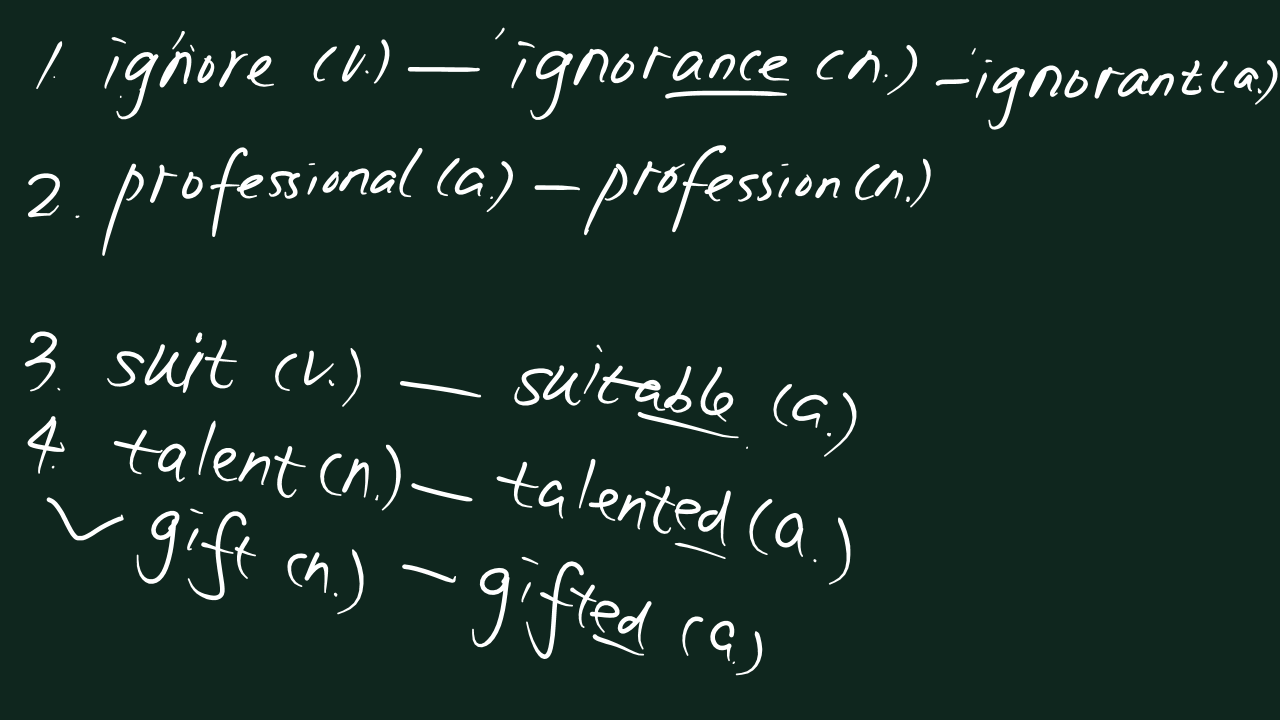 1. ignore (v.) — 'ignorance (n.) - 'ignorant (a.)
2. professional (a.) — profession (n.)
3. suit (v.) — suitable (a.)
4. talent (n.) — talented (a.)
✓ gift (n.) — gifted (a.)